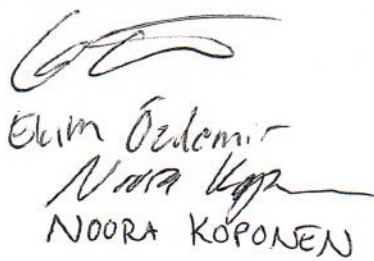 Ekim Özdemir
Noora Kop
NOORA KOPONEN